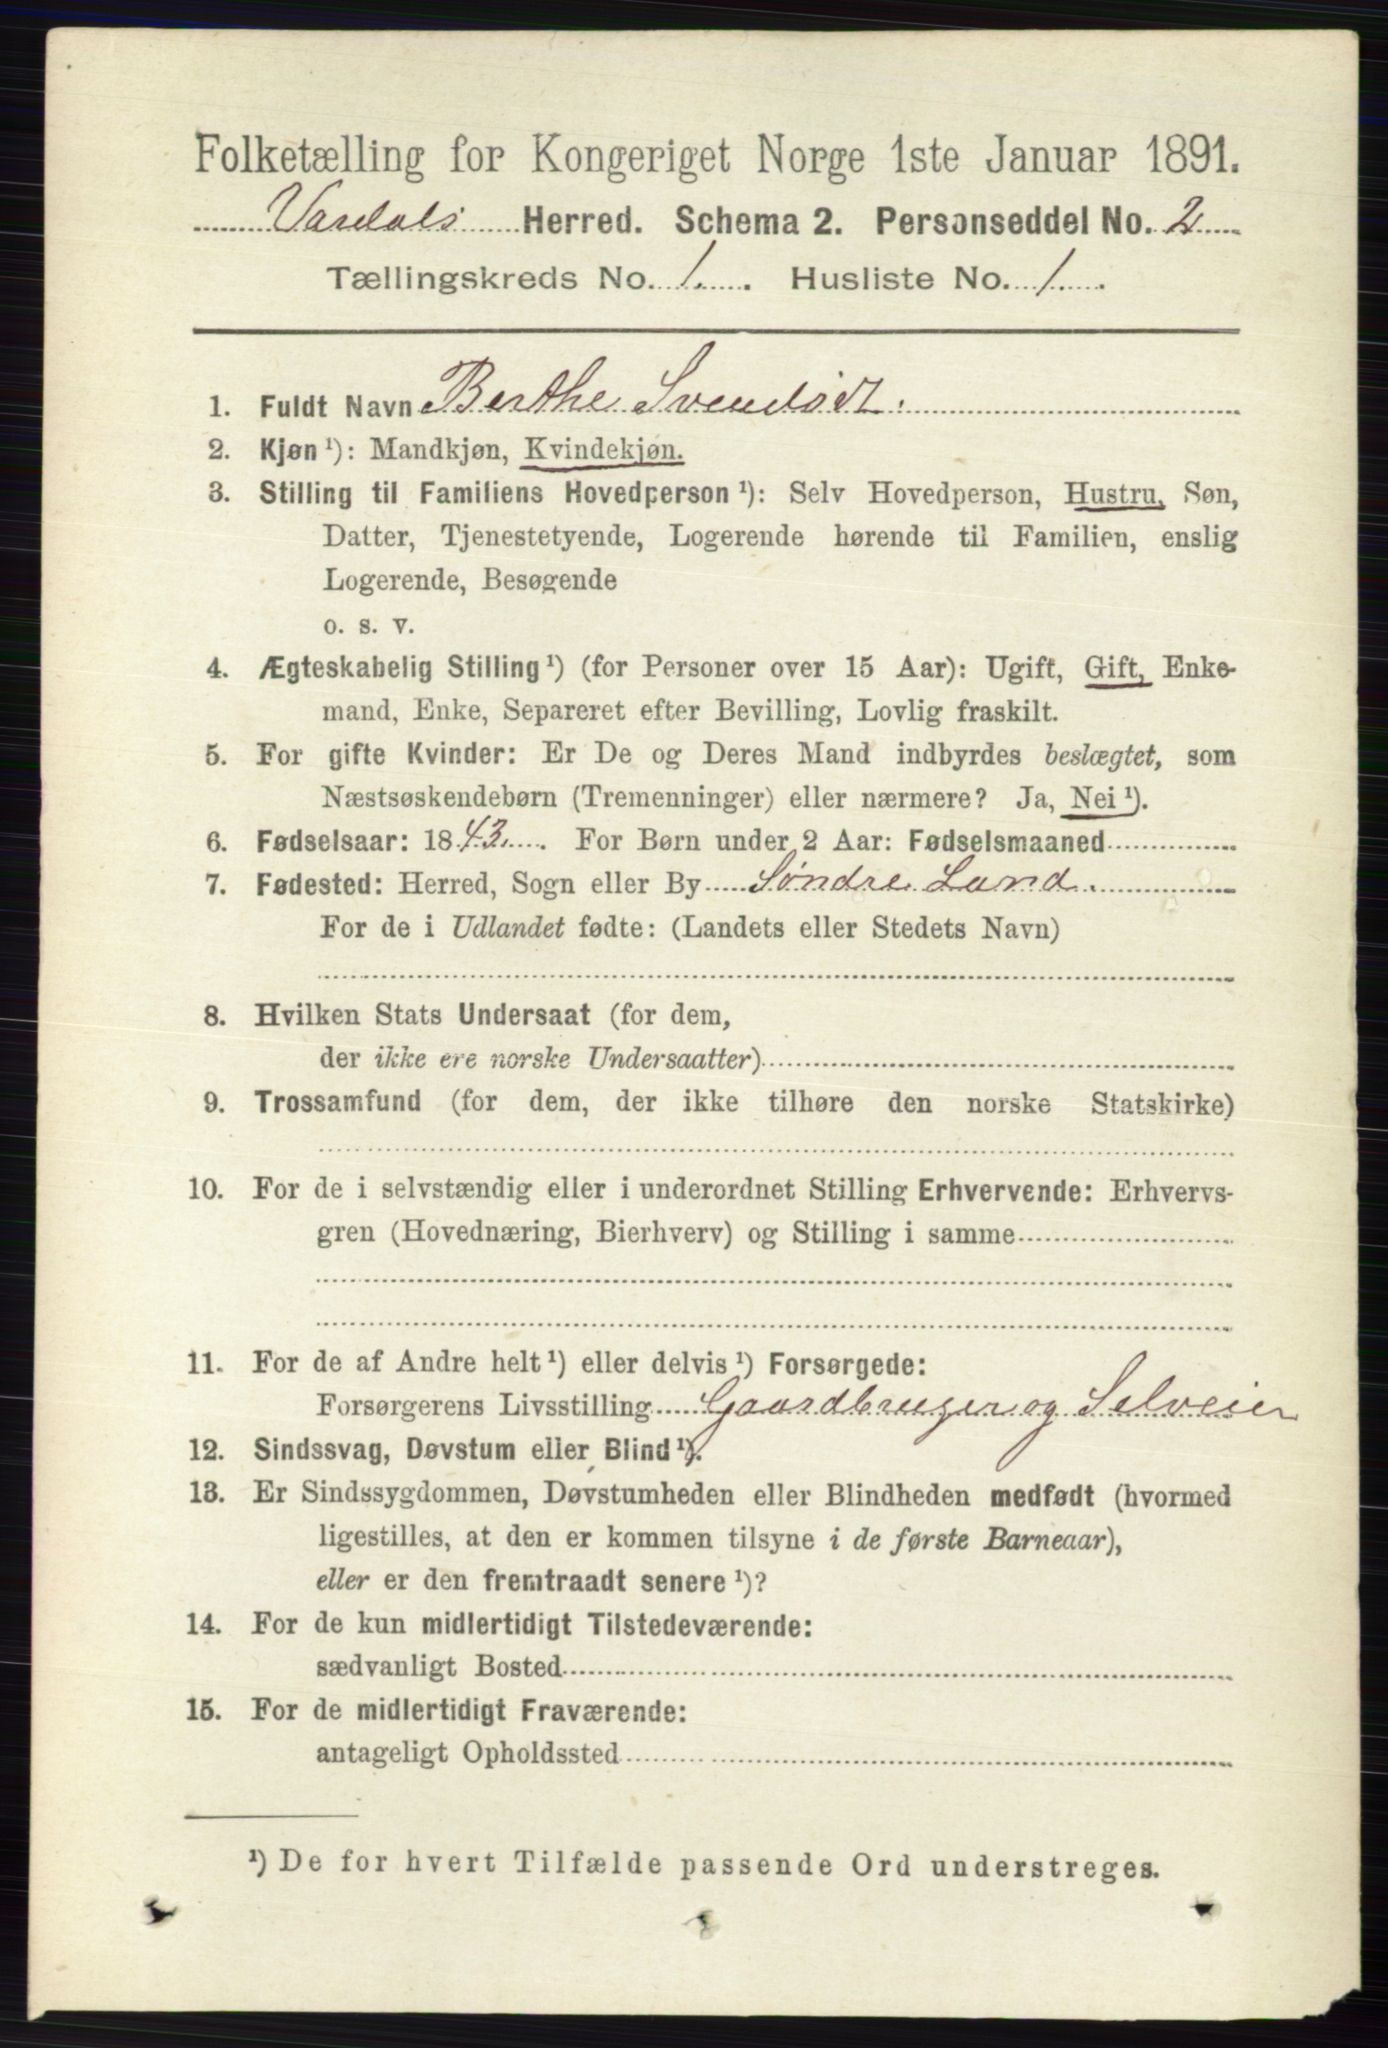 Folketælling for Kongeriget Norge 1ste Januar 1891.
Vardals Herred. Schema 2. Personseddel No. 2
Tællingskreds No. 1. Husliste No. 1.
1. Fuldt Navn Berthe Svendsdt.
2. Kjøn ¹): Mandkjøn, Kvindekjøn.
3. Stilling til Familiens Hovedperson ¹): Selv Hovedperson, Hustru, Søn,
Datter, Tjenestetyende, Logerende hørende til Familien, enslig
Logerende, Besøgende
o. s. v.
4. Ægteskabelig Stilling ¹) (for Personer over 15 Aar): Ugift, Gift, Enke-
mand, Enke, Separeret efter Bevilling, Lovlig fraskilt.
5. For gifte Kvinder: Er De og Deres Mand indbyrdes beslægtet, som
Næstsøskendebørn (Tremenninger) eller nærmere? Ja, Nei ¹).
6. Fødselsaar: 1843. For Børn under 2 Aar: Fødselsmaaned
7. Fødested: Herred, Sogn eller By Søndre Land.
For de i Udlandet fødte: (Landets eller Stedets Navn)
8. Hvilken Stats Undersaat (for dem,
der ikke ere norske Undersaatter)
9. Trossamfund (for dem, der ikke tilhøre den norske Statskirke)
10. For de i selvstændig eller i underordnet Stilling Erhvervende: Erhvervs-
gren (Hovednæring, Bierhverv) og Stilling i samme
11. For de af Andre helt ¹) eller delvis ¹) Forsørgede:
Forsørgerens Livsstilling Gaardbruger og Selveier
12. Sindssvag, Døvstum eller Blind ¹).
13. Er Sindssygdommen, Døvstumheden eller Blindheden medfødt (hvormed
ligestilles, at den er kommen tilsyne i de første Barneaar),
eller er den fremtraadt senere ¹)?
14. For de kun midlertidigt Tilstedeværende:
sædvanligt Bosted
15. For de midlertidigt Fraværende:
antageligt Opholdssted
¹) De for hvert Tilfælde passende Ord understreges.